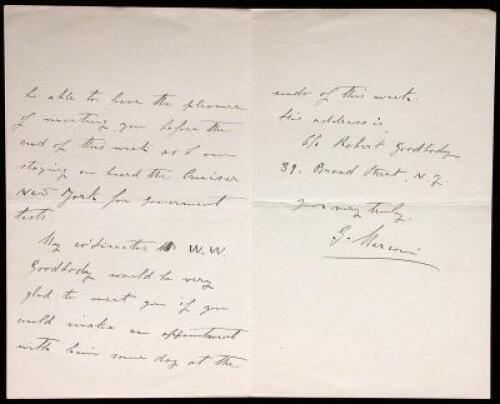 be able to have the pleasure
of meeting you before the
end of this week as I am
staying on board the Cruiser
New York for government
tests.
My co-director Mr W.W.
Goodbody would be very
glad to meet you if you
could make an appointment
with him some day at the
end of this week.
His address is,
c/o Robert Goodbody
39. Broad Street. N.Y.
Yours very truly.
G. Marconi